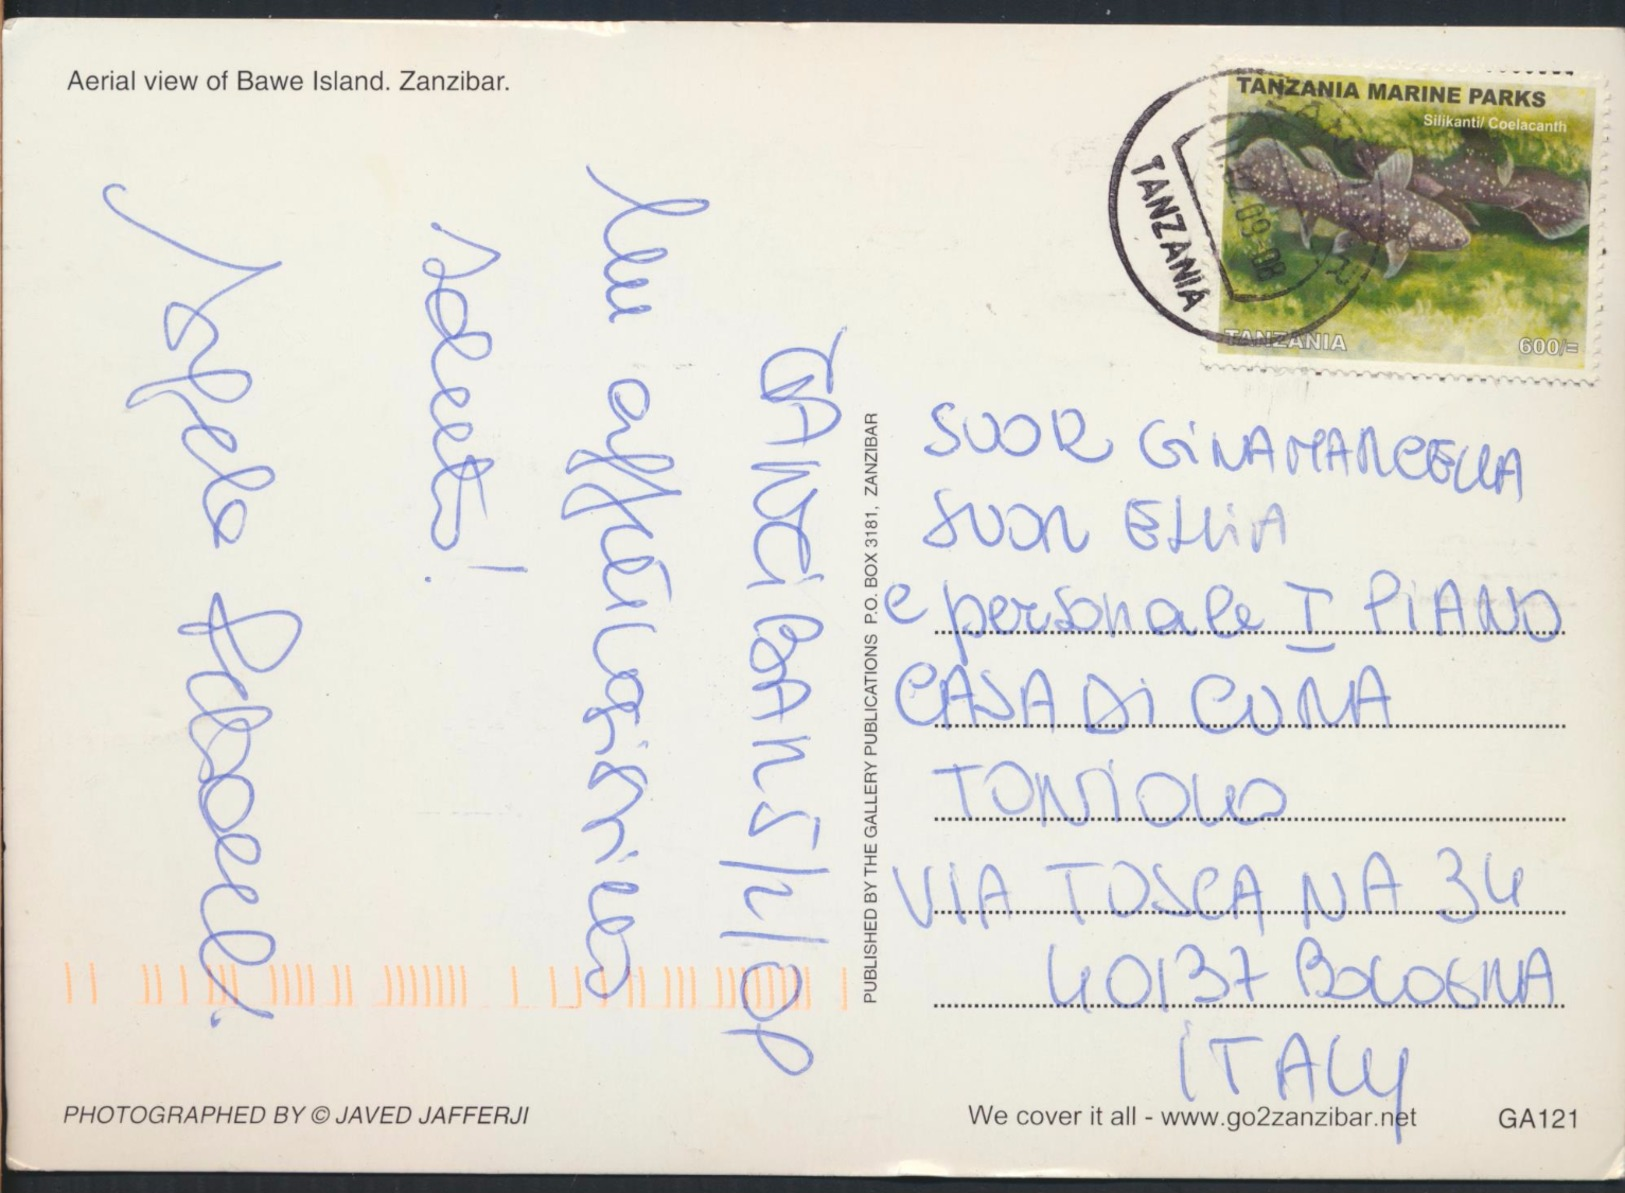 Aerial view of Bawe Island. Zanzibar.
TANZANIA MARINE PARKS
Silikanti/ Coelacanth
TANZANIA
600/=
TANZANIA
09-08
ZANZIBAR 15/2/08
Un affettuosissimo
saluto!
Angela
SUOR GINAMARCELLA
SUOR
e personale I PIANO
CASA DI CURA
TONIOLO
VIA TOSCANA 34
40137 BOLOGNA
ITALY
PUBLISHED BY THE GALLERY PUBLICATIONS P.O. BOX 3181, ZANZIBAR
PHOTOGRAPHED BY © JAVED JAFFERJI
We cover it all - www.go2zanzibar.net
GA121